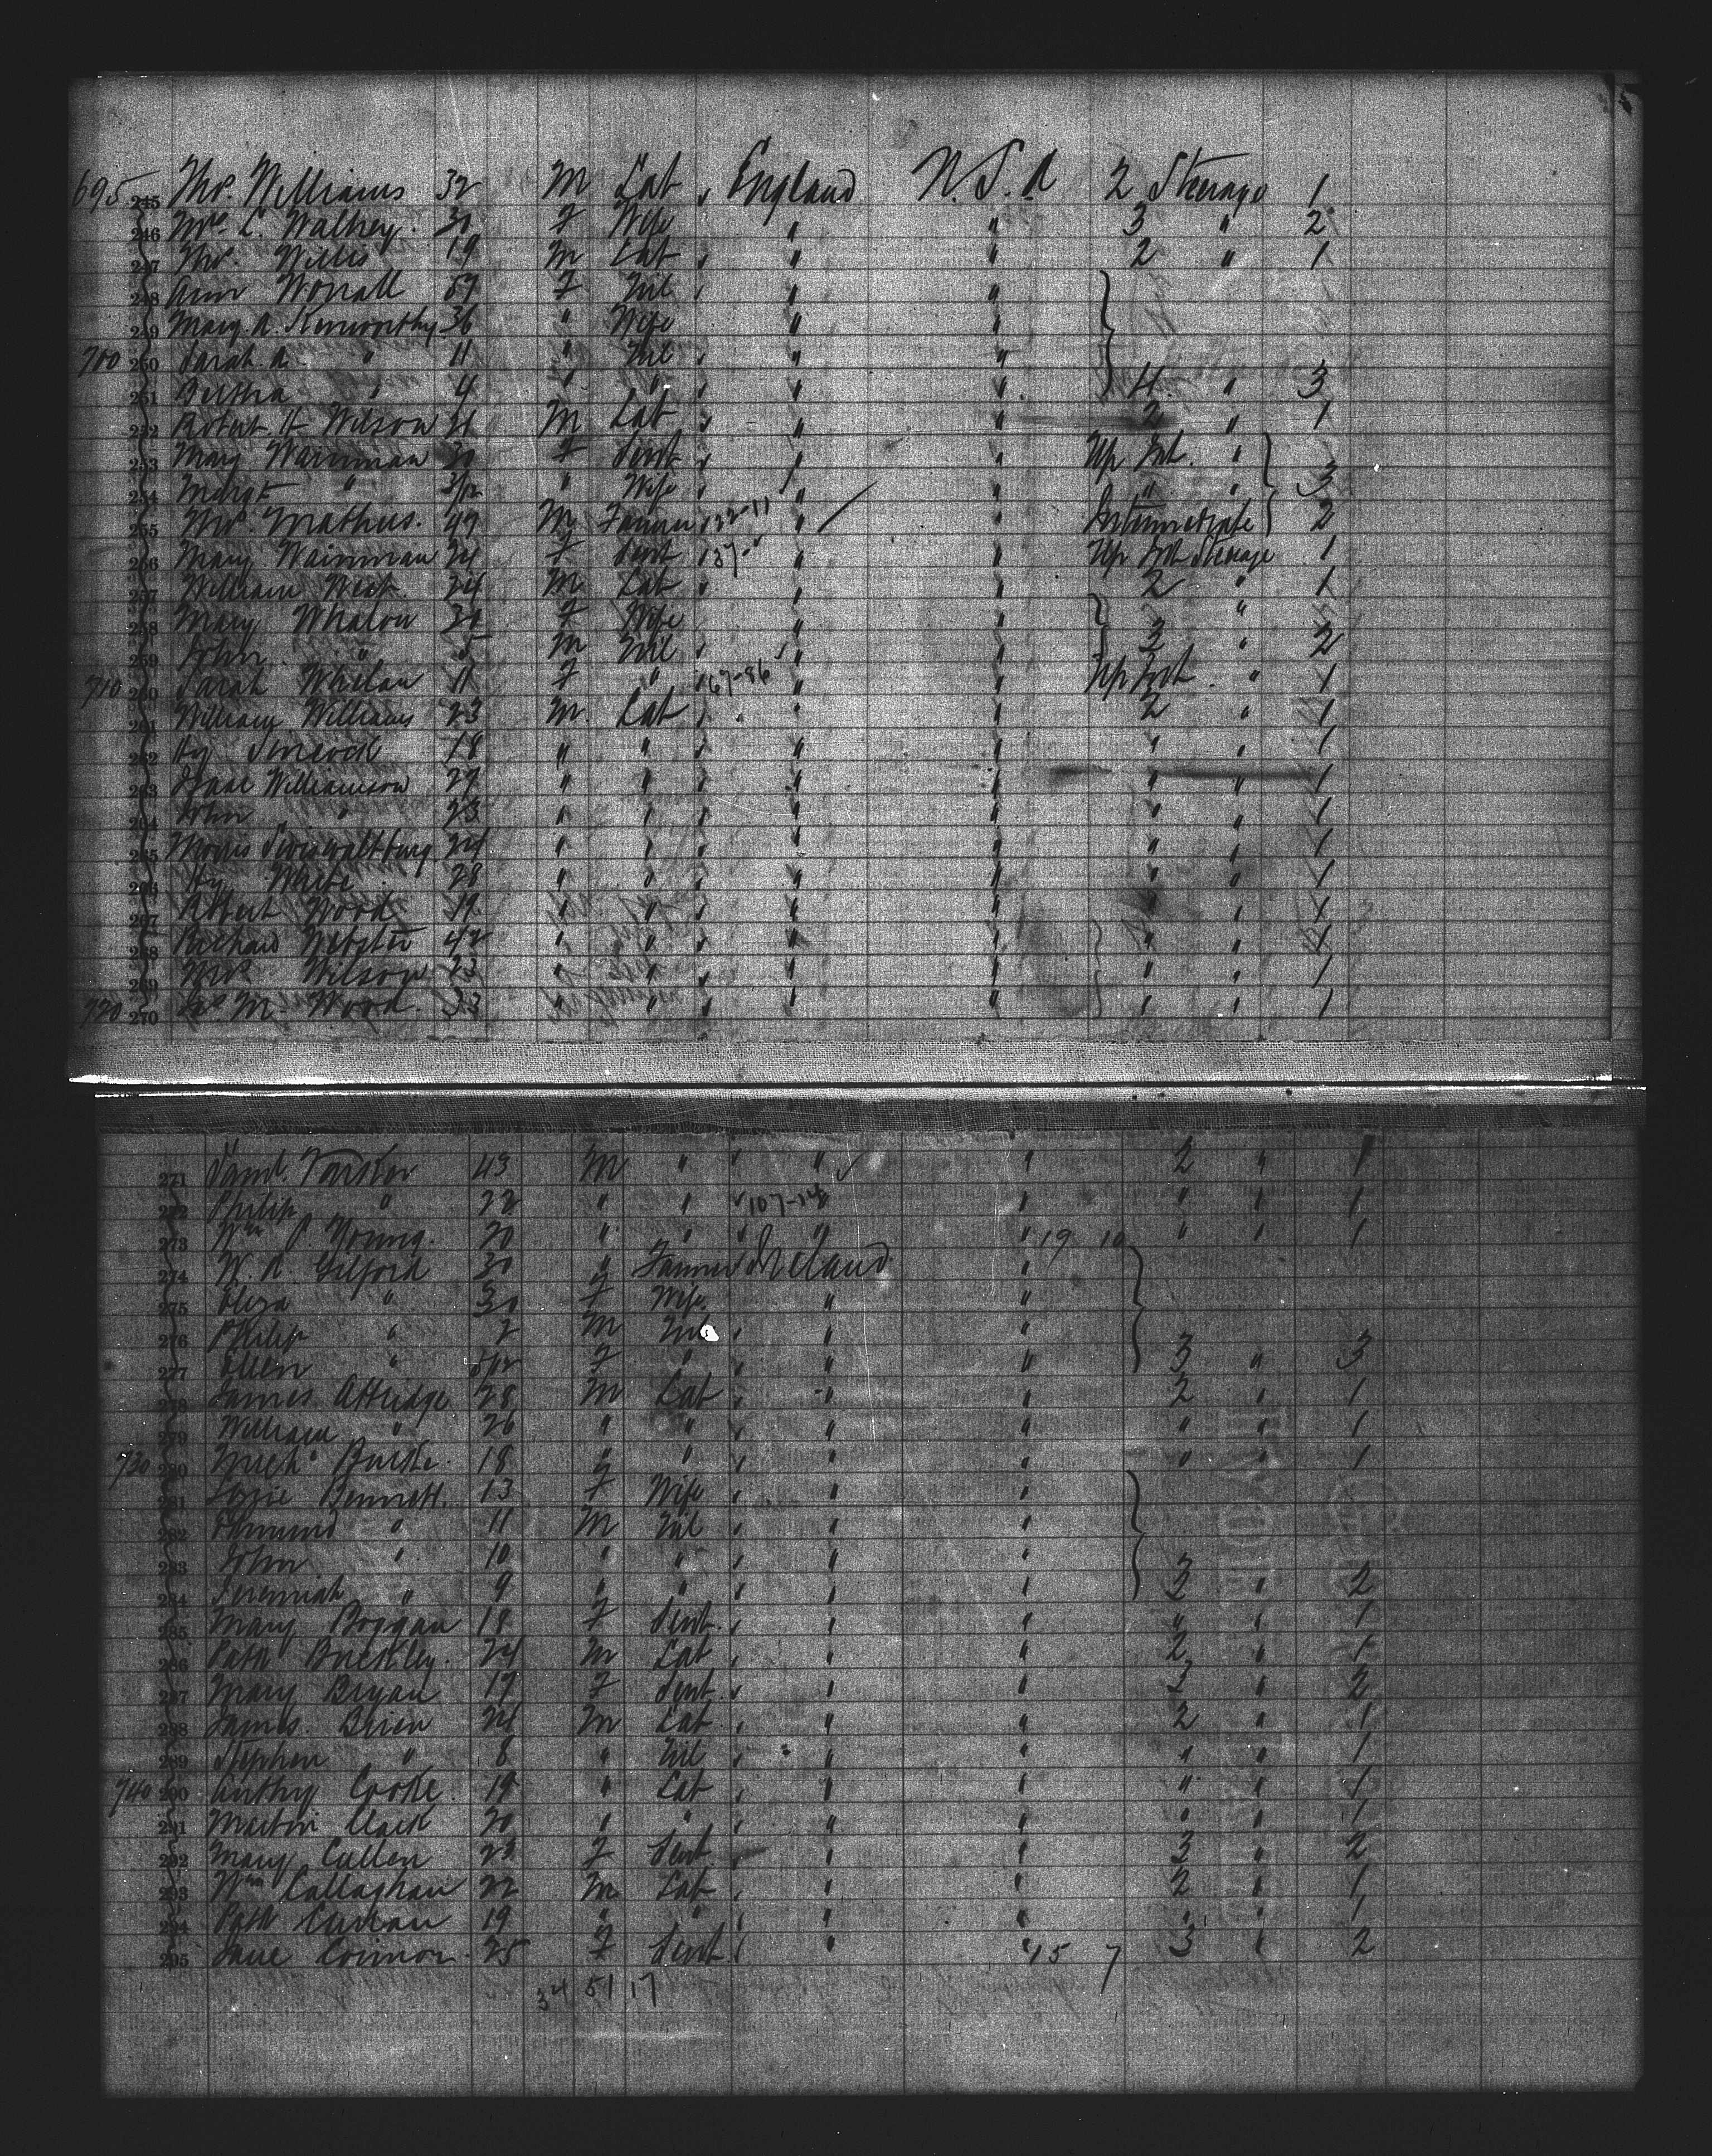 695 245 Thos. Williams 32 M Lab England U.S.A 2 Steerage 1
246 Mrs. L. Walkey 30 F Wife " " 3 " 2
247 Thos. Willis 19 M Lab " " 2 " 1
248 Ann Worrall 59 F Nil " "
249 Mary A. Kenworthy 36 " Wife " "
700 250 Sarah A. " 11 " Nil " "
251 Bertha " 4 " " " " 4 " 3
252 Robert H Wilson M Lab " " 2 " 1
253 Mary Wainman F Servt " " Up Int. "
254 Margt " " Wife " " " " 3
255 Mathews. 49 M Farmer 32-11 " " Intermediate 2
256 Mary Wainman 24 F Servt 37- " " Up Int Steerage 1
257 William West 24 M Lab " " 2 " 1
258 Mary Whalon 30 F Wife " " "
259 John " 5 M Nil " " 3 " 2
710 260 Sarah Whelan 11 F " 67-86 " " Up Int. " 1
261 William Williams 23 M. Lab " " 2 " 1
262 Hy 18 " " " " " " 1
263 Isaac Williamson 27 " " " " " " 1
264 John " 23 " " " " " " 1
265 Morris 24 " " " " " " 1
266 Hy White 28 " " " " " " 1
267 Albert Wood 19 " " " " " " 1
268 Richard Webster 42 " " " " " " 1
269 Wilson 23 " " " " " " 1
720 270 M. Wood. 33 " " " " " " 1
271 Saml. 43 M " " " 2 " 1
272 Philip " 22 " " 107-14 " " " 1
273 Wm P. Young. 20 " " " " 19 10 " " 1
274 W. A. Gilford 30 " Farmer Ireland "
275 Eliza " 30 F Wife " "
276 Philip " 2 M Nil " "
277 Ellen " F " " " 3 " 3
278 James Attridge 28 M Lab " " 2 " 1
279 William " 26 " " " " " " 1
730 280 Michl Burke 18 " " " " " " 1
281 Bennett 13 F Wife " "
282 Edmund " 11 M Nil " "
283 John " 10 " " " "
284 Jeremiah " 9 " " " " 3 " 2
285 Mary Boggan 18 F Servt. " " " " 1
286 Patk Buckley. 24 M Lab " " 2 " 1
287 Mary Bryan 17 F Servt. " " 3 " 2
288 James Brien 24 M Lab " " 2 " 1
289 Stephen " 8 " Nil " " " " 1
740 290 Anthy Cooke 19 " Lab " " " " 1
291 Martin Clark 20 " " " " " " 1
292 Mary Cullen 23 F Servt " " 3 " 2
293 Wm Callaghan 22 M Lab " " 2 " 1
294 Patk Curran 19 " " " " " " 1
295 Jane Connor 25 F Servt " 15 7 3 " 2
34 51 17